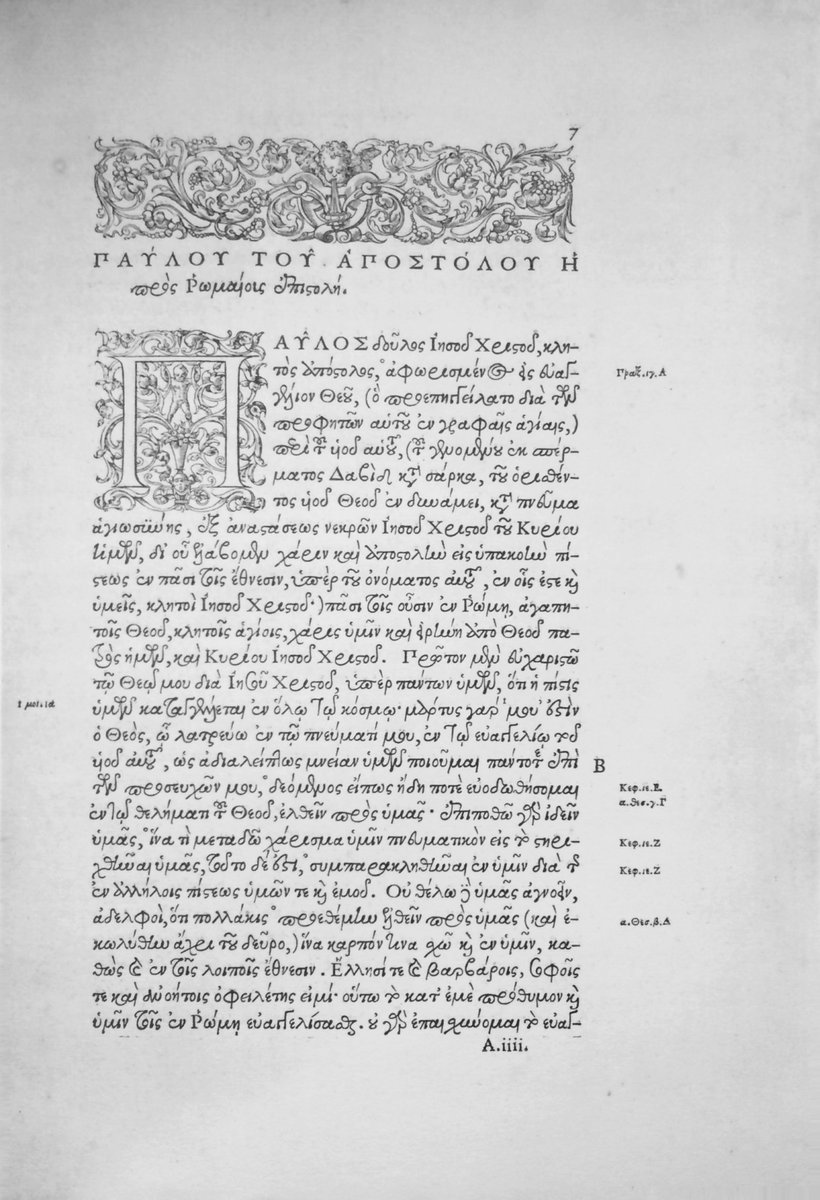 7
ΠΑΎΛΟΥ ΤΟΥ͂ ἈΠΟΣΤΌΛΟΥ Ἡ
πρὸς Ῥωμαίοις ἐπιστολή.
ΠΑΥ͂ΛΟΣ δοῦλος Ἰησοῦ Χριστοῦ, κλη-
τὸς ἀπόστολος, ἀφωρισμένος εἰς εὐαγ-
γέλιον Θεοῦ, (ὃ προεπηγγείλατο διὰ τῶν
προφητῶν αὑτοῦ ἐν γραφαῖς ἁγίαις,)
περὶ τοῦ ὑιοῦ αὑτοῦ, (τοῦ γενομένου ἐκ σπέρ-
ματος Δαβὶδ κατὰ σάρκα, τοῦ ὁρισθέν-
τος ὑιοῦ Θεοῦ ἐν δυνάμει, κατὰ πνεῦμα
ἁγιωσύνης, ἐξ ἀναστάσεως νεκρῶν Ἰησοῦ Χριστοῦ τοῦ Κυρίου
ἡμῶν, δι' οὗ ἐλάβομεν χάριν καὶ ἀποστολὴν εἰς ὑπακοὴν πί-
στεως ἐν πᾶσι τοῖς ἔθνεσιν, ὑπὲρ τοῦ ὀνόματος αὑτοῦ, ἐν οἷς ἐστε καὶ
ὑμεῖς, κλητοὶ Ἰησοῦ Χριστοῦ·) πᾶσι τοῖς οὖσιν ἐν Ῥώμῃ, ἀγαπη-
τοῖς Θεοῦ, κλητοῖς ἁγίοις, χάρις ὑμῖν καὶ εἰρήνη ἀπὸ Θεοῦ πα-
τρὸς ἡμῶν, καὶ Κυρίου Ἰησοῦ Χριστοῦ. Πρῶτον μὲν εὐχαριστῶ
τῷ Θεῷ μου διὰ Ἰησοῦ Χριστοῦ, ὑπὲρ πάντων ὑμῶν, ὅτι ἡ πίστις
ὑμῶν καταγγέλλεται ἐν ὅλῳ τῷ κόσμῳ· μάρτυς γάρ μου ἐστὶν
ὁ Θεὸς, ᾧ λατρεύω ἐν τῷ πνεύματί μου, ἐν τῷ εὐαγγελίῳ τοῦ
ὑιοῦ αὑτοῦ, ὡς ἀδιαλείπτως μνείαν ὑμῶν ποιοῦμαι πάντοτε ἐπὶ
τῶν προσευχῶν μου, δεόμενος εἴπως ἤδη ποτὲ εὐοδωθήσομαι
ἐν τῷ θελήματι τοῦ Θεοῦ, ἐλθεῖν πρὸς ὑμᾶς· ἐπιποθῶ γὰρ ἰδεῖν
ὑμᾶς, ἵνα τὶ μεταδῶ χάρισμα ὑμῖν πνευματικὸν εἰς τὸ στηρι-
χθῆναι ὑμᾶς, τοῦτο δέ ἐστι, συμπαρακληθῆναι ἐν ὑμῖν διὰ τῆς
ἐν ἀλλήλοις πίστεως ὑμῶν τε καὶ ἐμοῦ. Οὐ θέλω δὲ ὑμᾶς ἀγνοεῖν,
ἀδελφοὶ, ὅτι πολλάκις προεθέμην ἐλθεῖν πρὸς ὑμᾶς (καὶ ἐ-
κωλύθην ἄχρι τοῦ δεῦρο,) ἵνα καρπόν τινα σχῶ καὶ ἐν ὑμῖν, κα-
θὼς καὶ ἐν τοῖς λοιποῖς ἔθνεσιν. Ἕλλησί τε καὶ βαρβάροις, σοφοῖς
τε καὶ ἀνοήτοις ὀφειλέτης εἰμί· οὕτω τὸ κατ' ἐμὲ πρόθυμον καὶ
ὑμῖν τοῖς ἐν Ῥώμῃ εὐαγγελίσασθαι. οὐ γὰρ ἐπαισχύνομαι τὸ εὐαγ-
A.iiii.
Πραξ.ιγ.Α
B
Κεφ.ιε.Ε.
α.θεσ.γ.Γ
Κεφ.ιε.Ζ
Κεφ.ιε.Ζ
α.Θεσ.β.Δ